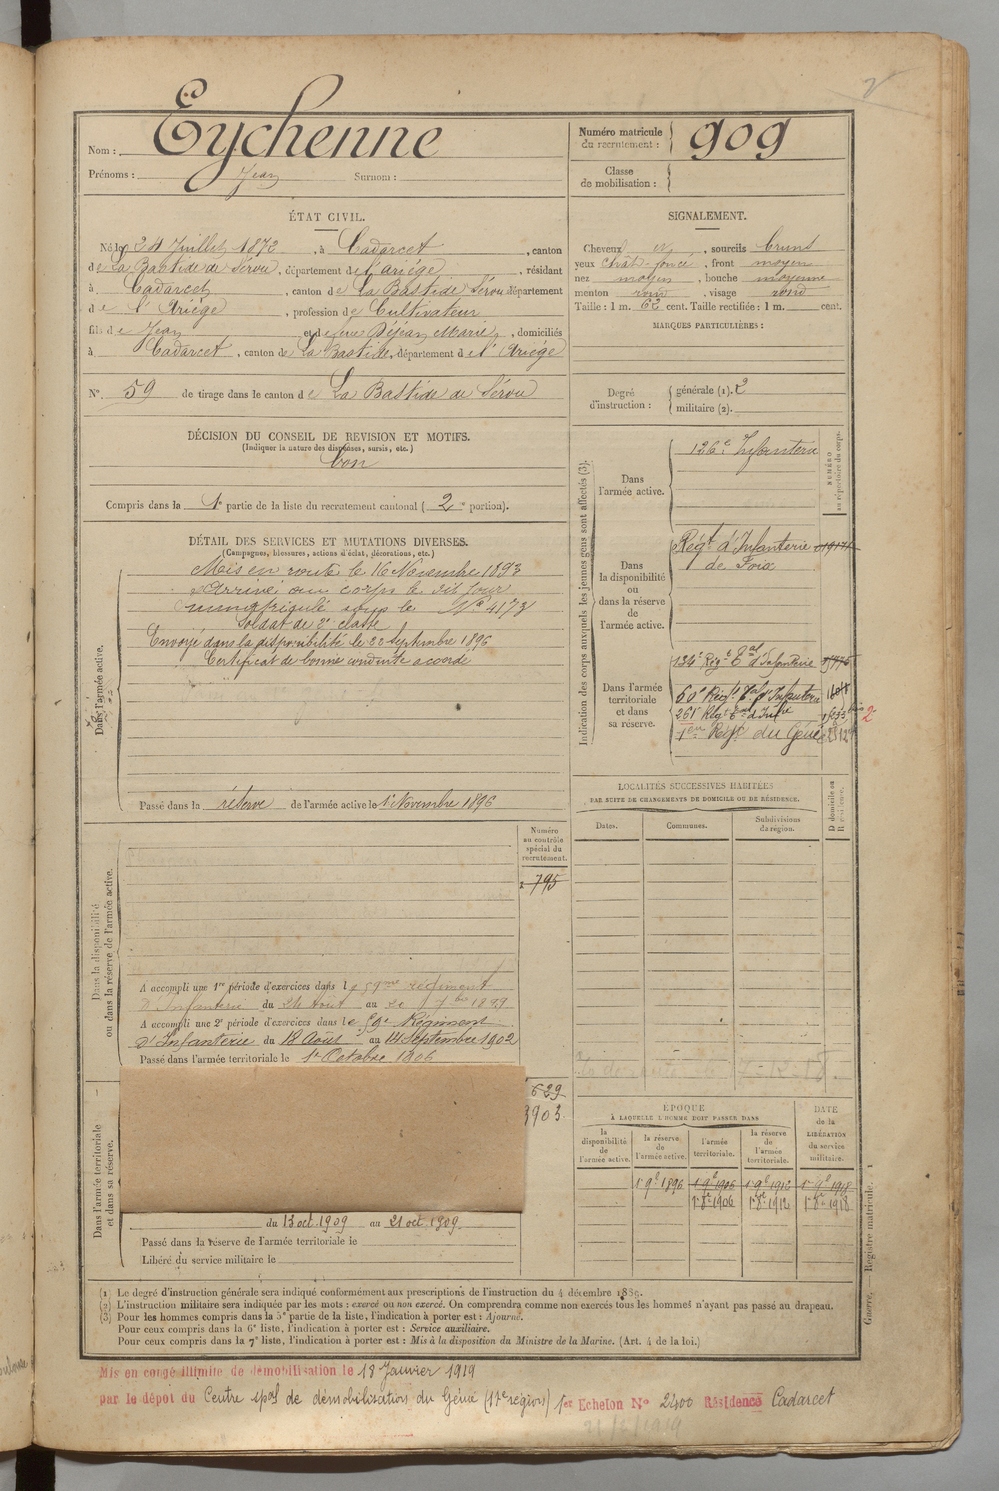 Nom : Eychenne
Prénoms : Jean Surnom :
Numéro matricule du recrutement : 909
Classe de mobilisation :
ÉTAT CIVIL.
Né le 24 Juillet 1872, à Cadarcet, canton
de La Bastide de Sérou, département de l'ariège, résidant
à Cadarcet, canton de La Bastide Sérou département
de l'Ariège, profession de Cultivateur
fils de Jean et de feue Déjean Marie, domiciliés
à Cadarcet, canton de La Bastide, département de l'Ariège
N° 59 de tirage dans le canton de La Bastide de Sérou
SIGNALEMENT.
Cheveux et, sourcils bruns
yeux chât. foncé, front moyen
nez moyen, bouche moyenne
menton rond, visage rond
Taille : 1 m. 62 cent. Taille rectifiée : 1 m. cent.
MARQUES PARTICULIÈRES :
Degré d'instruction : générale (1). 2
militaire (2).
DÉCISION DU CONSEIL DE REVISION ET MOTIFS.
(Indiquer la nature des dispenses, sursis, etc.)
bon
Compris dans la 1e partie de la liste du recrutement cantonal (2e portion).
DÉTAIL DES SERVICES ET MUTATIONS DIVERSES.
(Campagnes, blessures, actions d'éclat, décorations, etc.)
Dans l'armée active.
Mis en route le 16 Novembre 1893
Arrivé au corps le dit jour
immatriculé sous le N° 4173
Soldat de 2e classe
Envoyé dans la disponibilité le 22 Septembre 1896
Certificat de bonne conduite accordé
Passé dans la réserve de l'armée active le 1er Novembre 1896
Indication des corps auxquels les jeunes gens sont affectés (3).
NUMÉRO au répertoire du corps.
Dans l'armée active.
126e Infanterie
Dans la disponibilité ou dans la réserve de l'armée active.
Régt d'Infanterie
de Foix
Dans l'armée territoriale et dans sa réserve.
134e Régt Eal d'Infanterie
60e Régt Eal d'Infanterie
261e Régt Eal d'Infrie
1er Régt du Génie
2
LOCALITÉS SUCCESSIVES HABITÉES
PAR SUITE DE CHANGEMENTS DE DOMICILE OU DE RÉSIDENCE.
Dates. Communes. Subdivisions de région. D domicile ou R résidence.
Dans la disponibilité ou dans la réserve de l'armée active.
Numéro au contrôle spécial du recrutement.
795
A accompli une 1re période d'exercices dans le 59me régiment
d'Infanterie du 24 Août au 20 7bre 1899
A accompli une 2e période d'exercices dans le 59e Régiment
d'Infanterie du 18 Août au 14 Septembre 1902
Passé dans l'armée territoriale le 1er Octobre 1906
Dans l'armée territoriale et dans sa réserve.
629
3903
du 13 oct. 1909 au 21 oct 1909
Passé dans la réserve de l'armée territoriale le
Libéré du service militaire le
ÉPOQUE
À LAQUELLE L'HOMME DOIT PASSER DANS
la disponibilité de l'armée active. la réserve de l'armée active. l'armée territoriale. la réserve de l'armée territoriale. DATE de la LIBÉRATION du service militaire.
1er 9bre 1896 1er 9bre 1906 1er 9bre 1912 1er 9bre 1918
1er 8bre 1906 1er 8bre 1912 1er 8bre 1918
Guerre. — Registre matricule. 1
(1) Le degré d'instruction générale sera indiqué conformément aux prescriptions de l'instruction du 4 décembre 1889.
(2) L'instruction militaire sera indiquée par les mots : exercé ou non exercé. On comprendra comme non exercés tous les hommes n'ayant pas passé au drapeau.
(3) Pour les hommes compris dans la 5e partie de la liste, l'indication à porter est : Ajourné.
Pour ceux compris dans la 6e liste, l'indication à porter est : Service auxiliaire.
Pour ceux compris dans la 7e liste, l'indication à porter est : Mis à la disposition du Ministre de la Marine. (Art. 4 de la loi.)
Mis en congé illimité de démobilisation le 18 Janvier 1919
par le dépôt du Centre spal de démobilisation du Génie (17e région) 1er Echelon N° 2400 Résidence Cadarcet